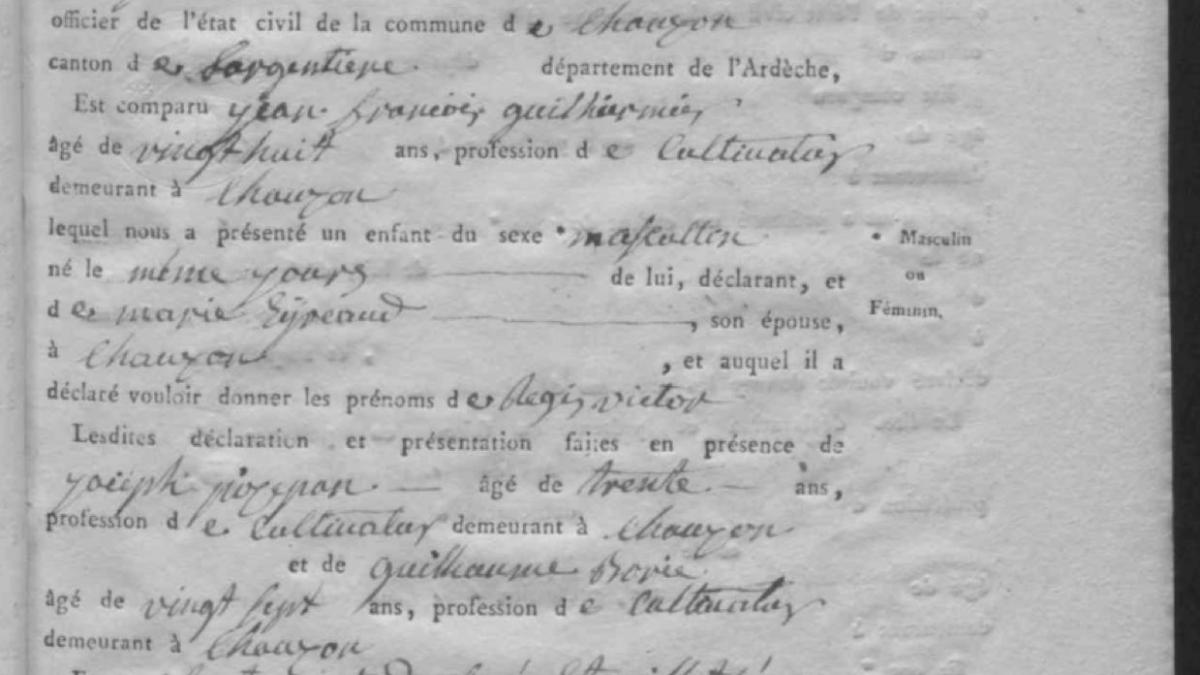 officier de l'état civil de la commune d e Chauzon
canton d e Largentiere département de l'Ardèche,
Est comparu jean francois guilhermier
âgé de vingt huit ans, profession d e Cultivatur
demeurant à Chauzon
lequel nous a présenté un enfant du sexe * mascullin
* Masculin
ou
Féminin.
né le même jours de lui, déclarant, et
d e marie Eyreaud , son épouse,
à Chauzon , et auquel il a
déclaré vouloir donner les prénoms d e Regis victor
Lesdites déclaration et présentation faites en présence de
joseph âgé de trente ans,
profession d e Cultivatur demeurant à Chauzon
et de guilhaume Borie
âgé de vingt sept ans, profession d e Cultivatur
demeurant à Chauzon